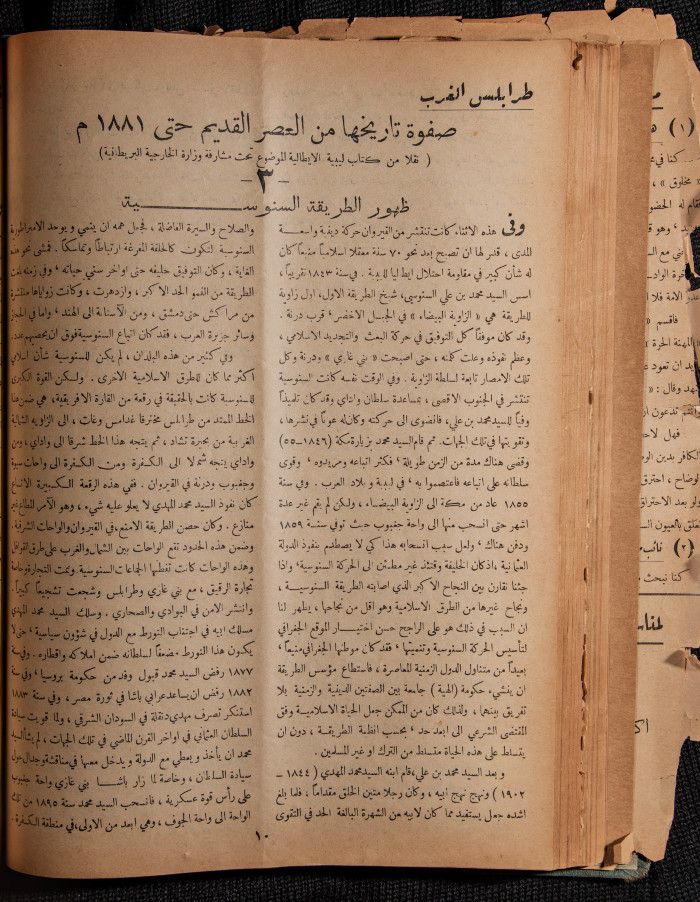 طرابلس الغرب
صفوة تاريخها من العصر القديم حتى ١٨٨١ م
( نقلا من كتاب ليبية الايطالية الموضوع تحت مشارفة وزارة الخارجية البريطانية )
-٣-
ظهور الطريقة السنوسية
وفي هذه الاثناء كانت تنتشر من القيروان حركة دينية واسعة
المدى ، قدر لها ان تصبح بعد نحو ٧٠ سنة معقلا اسلامياً منيعاً كان
له شأن كبير في مقاومة احتلال ايطاليا لليبية . في سنة ١٨٤٣ تقريباً ،
اسس السيد محمد بن علي السنوسي، شيخ الطريقة الاول، اول زاوية
للطريقة هي « الزاوية البيضاء » في الجبل الاخضر، قرب درنة .
وقد كان موفقاً كل التوفيق في حركة البعث والتجديد الاسلامي ،
وعظم نفوذه وعلت كلمته ، حتى اصبحت « بني غازي » ودرنة وكل
تلك الامصار تابعة لسلطة الزاوية . وفي الوقت نفسه كانت السنوسية
تنتشر في الجنوب الاقصى ، بمساعدة سلطان واداي وقد كان تلميذاً
وفياً للسيد محمد بن علي، فانضوى الى حركته وكان له عوناً في نشرها ،
وتقويتها في تلك الجهات. ثم قام السيد محمد بزيارة مكة (١٨٤٦–٥٥)
وقضى هناك مدة من الزمن طويلة ، فكثر اتباعه ومريدوه ، وقوى
سلطانه على اتباعه فاعتصموا به ، في ليبية و بلاد العرب . وفي سنة
١٨٥٥ عاد من مكة الى الزاوية البيضاء ، ولكن لم يقم غير عدة
اشهر حتى انسحب منها الى واحة جغبوب حيث توفي سنة ١٨٥٩
ودفن هناك ، ولعل سبب انسحابه هذا كي لا يصطدم بنفوذ الدولة
العثمانية ، اذ كان الخليفة وقتئذ غير مطمئن الى الحركة السنوسية، واذا
جئنا نقارن بين النجاح الاكبر الذي اصابته الطريقة السنوسية ،
ونجاح غيرها من الطرق الاسلامية وهو اقل من نجاحها ، يظهر لنا
ان السبب في ذلك هو على الراجح حسن اختيار الموقع الجغرافي
لتأسيس الحركة السنوسية وتنميتها ، فقد كان موطنها الجغرافي منيعاً ،
بعيداً من متناول الدول الزمنية المعاصرة ، فاستطاع مؤسس الطريقة
ان ينشيء حكومة (الهية) جامعة بين الصفتين الدينية والزمنية بلا
تفريق بينهما ، ولذلك كان من الممكن جعل الحياة الاسلامية وفق
المقتضى الشرعي الى ابعد حد ، بحسب انظمة الطريقة ، دون ان
يتساط على هذه الحياة متسلط من الترك او غير المسلمين .
و بعد السيد محمد بن علي ، قام ابنه السيد محمد المهدي ( ١٨٤٤ –
١٩٠٢ ) ونهج نهج ابيه ، وكان رجلا متين الخلق مقداماً ، فلما بلغ
اشده جعل يستفيد مما كان لابيه من الشهرة البالغة الحد في التقوى
والصلاح والسيرة الفاضلة ، فجعل همه ان ينمي و يوحد الامبراطورية
السنوسية لتكون كالحلقة المفرغة ارتباطاً وتماسكاً . فمشى نحو هذه
الغاية ، وكان التوفيق حليفه حتى اواخر سني حياته ، وفي زمنه بلغت
الطريقة من النمو الحد الاكبر ، وازدهرت ، وكانت زواياها منتشرة
من مراكش حتى دمشق ، ومن الآستانة الى الهند ، واما في الحجاز
وسائر جزيرة العرب ، فقد كان اتباع السنوسية فوق ان يحصيهم عدد.
وفي كثير من هذه البلدان ، لم يكن للسنوسية شأن اسلامي
اكثر مما كان للطرق الاسلامية الاخرى . ولكن القوة الكبرى
للسنوسية كانت بالحقيقة في رقعة من القارة الافريقية، هي ضمن هذا
الخط الممتد من طرابلس مخترقا غدامس وغات ، الى الزاوية الشمالية
الغربية من بحيرة تشاد ، ثم يتجه هذا الخط شرقا الى واداي ، ومن
واداي يتجه شمالا الى الكفرة ومن الكفرة الى واحات سيوة
وجغبوب ودرنة في القيروان . ففي هذه الرقعة الكبيرة الاتساع
كان نفوذ السيد محمد المهدي لا يعلو عليه شيء ، وهو الآمر المطاع غير
منازع . وكان حصن الطريقة الامنع، في القيروان والواحات الشرقية .
وضمن هذه الحدود تقع الواحات بين الشمال والغرب على طرق القوافل
وهذه الواحات كانت تقطنها الجماعات السنوسية. ونمت التجارة وخاصة
تجارة الرقيق ، مع بني غازي وطرابلس وشجعت تشجيعاً كبيراً .
وانتشر الامن في البوادي والصحاري . وسلك السيد محمد المهدي
مسلك ابيه في اجتناب التورط مع الدول في شؤون سياسية ، حتى لا
يكون هذا التورط مضعفاً لسلطانه ضمن املاكه واقطاره . وفي سنة
١٨٧٧ رفض السيد محمد قبول وفد من حكومة بروسيا ، وفي سنة
١٨٨٢ رفض ان يساعد عرابي باشا في ثورة مصر ، وفي سنة ١٨٨٣
استنكر تصرف مهدي دنقلة في السودان الشرقي ، ولما قويت سيادة
السلطان العثماني في اواخر القرن الماضي في تلك الجهات ، لم يشأ السيد
محمد ان يأخذ و يعطي مع الدولة و يدخل معها في مناقشة وجدال حول
سيادة السلطان ، وخاصة لما زار باشا بني غازي واحة جغبوب
على رأس قوة عسكرية ، فانسحب السيد محمد سنة ١٨٩٥ من تلك
الواحة الى واحة الجوف ، وهي ابعد من الاولى، في منطقة الكفرة .
١٠